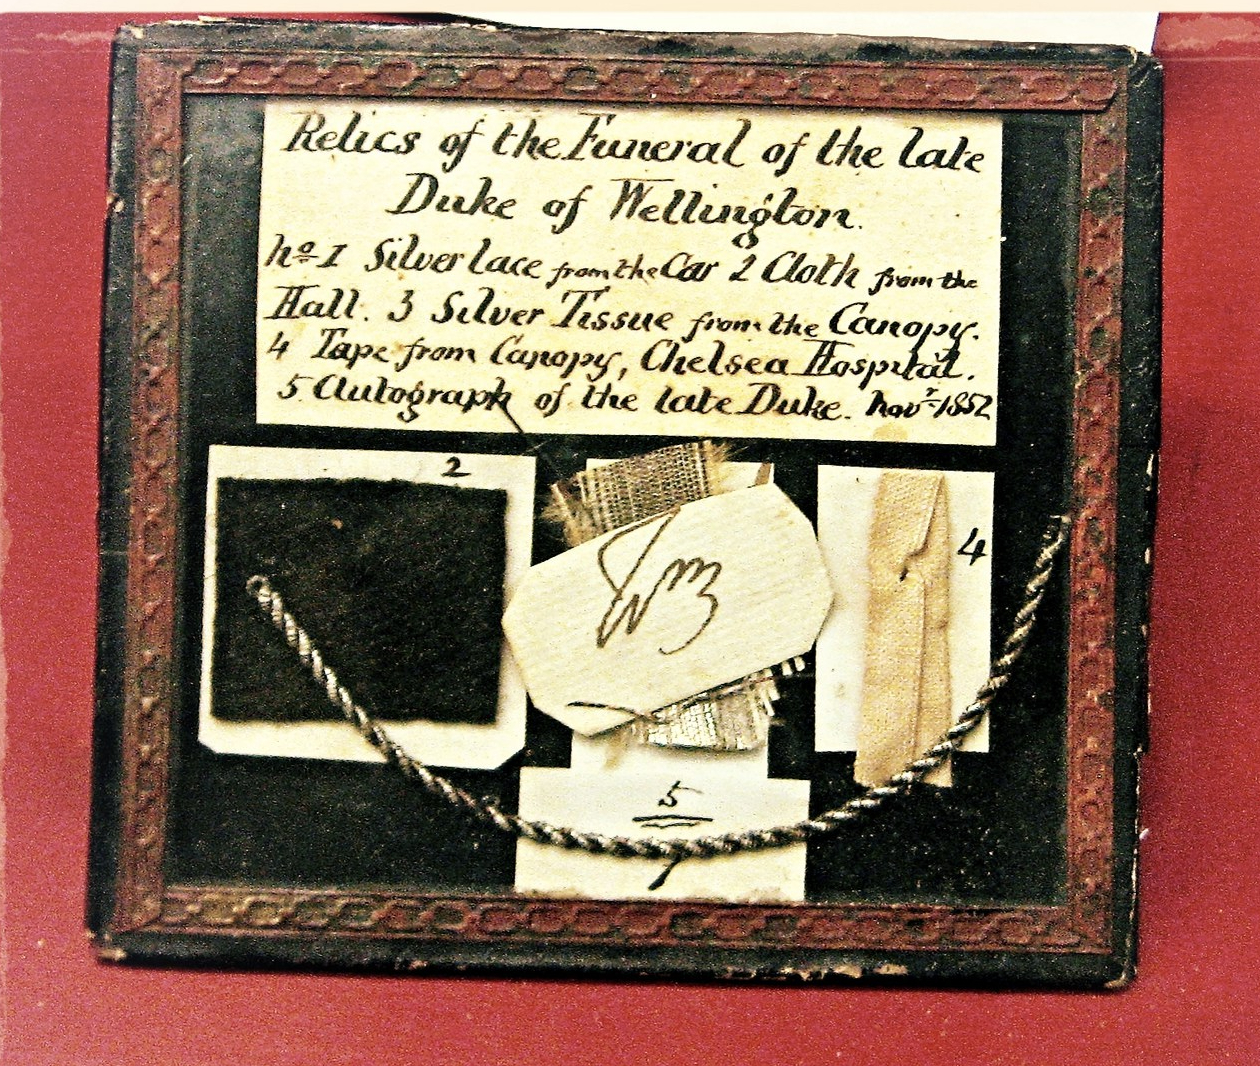 Relics of the Funeral of the late
Duke of Wellington.
no 1 Silver lace from the Car 2 Cloth from the
Hall. 3 Silver Tissue from the Canopy.
4 Tape from Canopy, Chelsea Hospital.
5 Autograph of the late Duke. Novr 1852
2
4
5
1